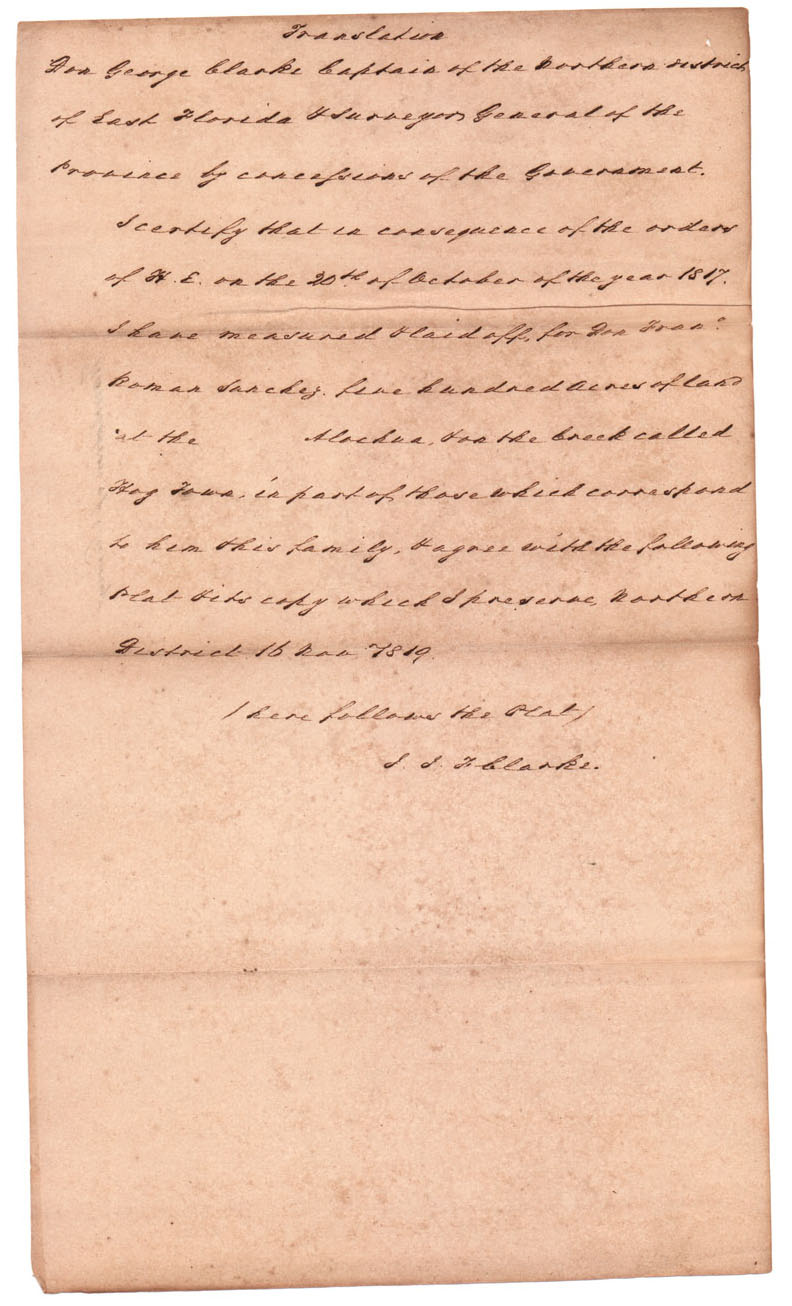 Translation
Don George Clarke Captain of the Northern district
of East Florida & Surveyor General of the
Province by concessions of the Government.
I certify that in consequence of the orders
of H. E. on the 20th of October of the year 1817.
I have measured & laid off, for Don Franco.
Roman Sanchez. five hundred acres of land
at the Alachua, & on the Creek called
Hog Town, in part of those which correspond
to him & his family, & agree with the following
Plat & its copy which I preserve, Northern
District 16 Nov 1819.
(here follows the Plat)
J. J. F Clarke.